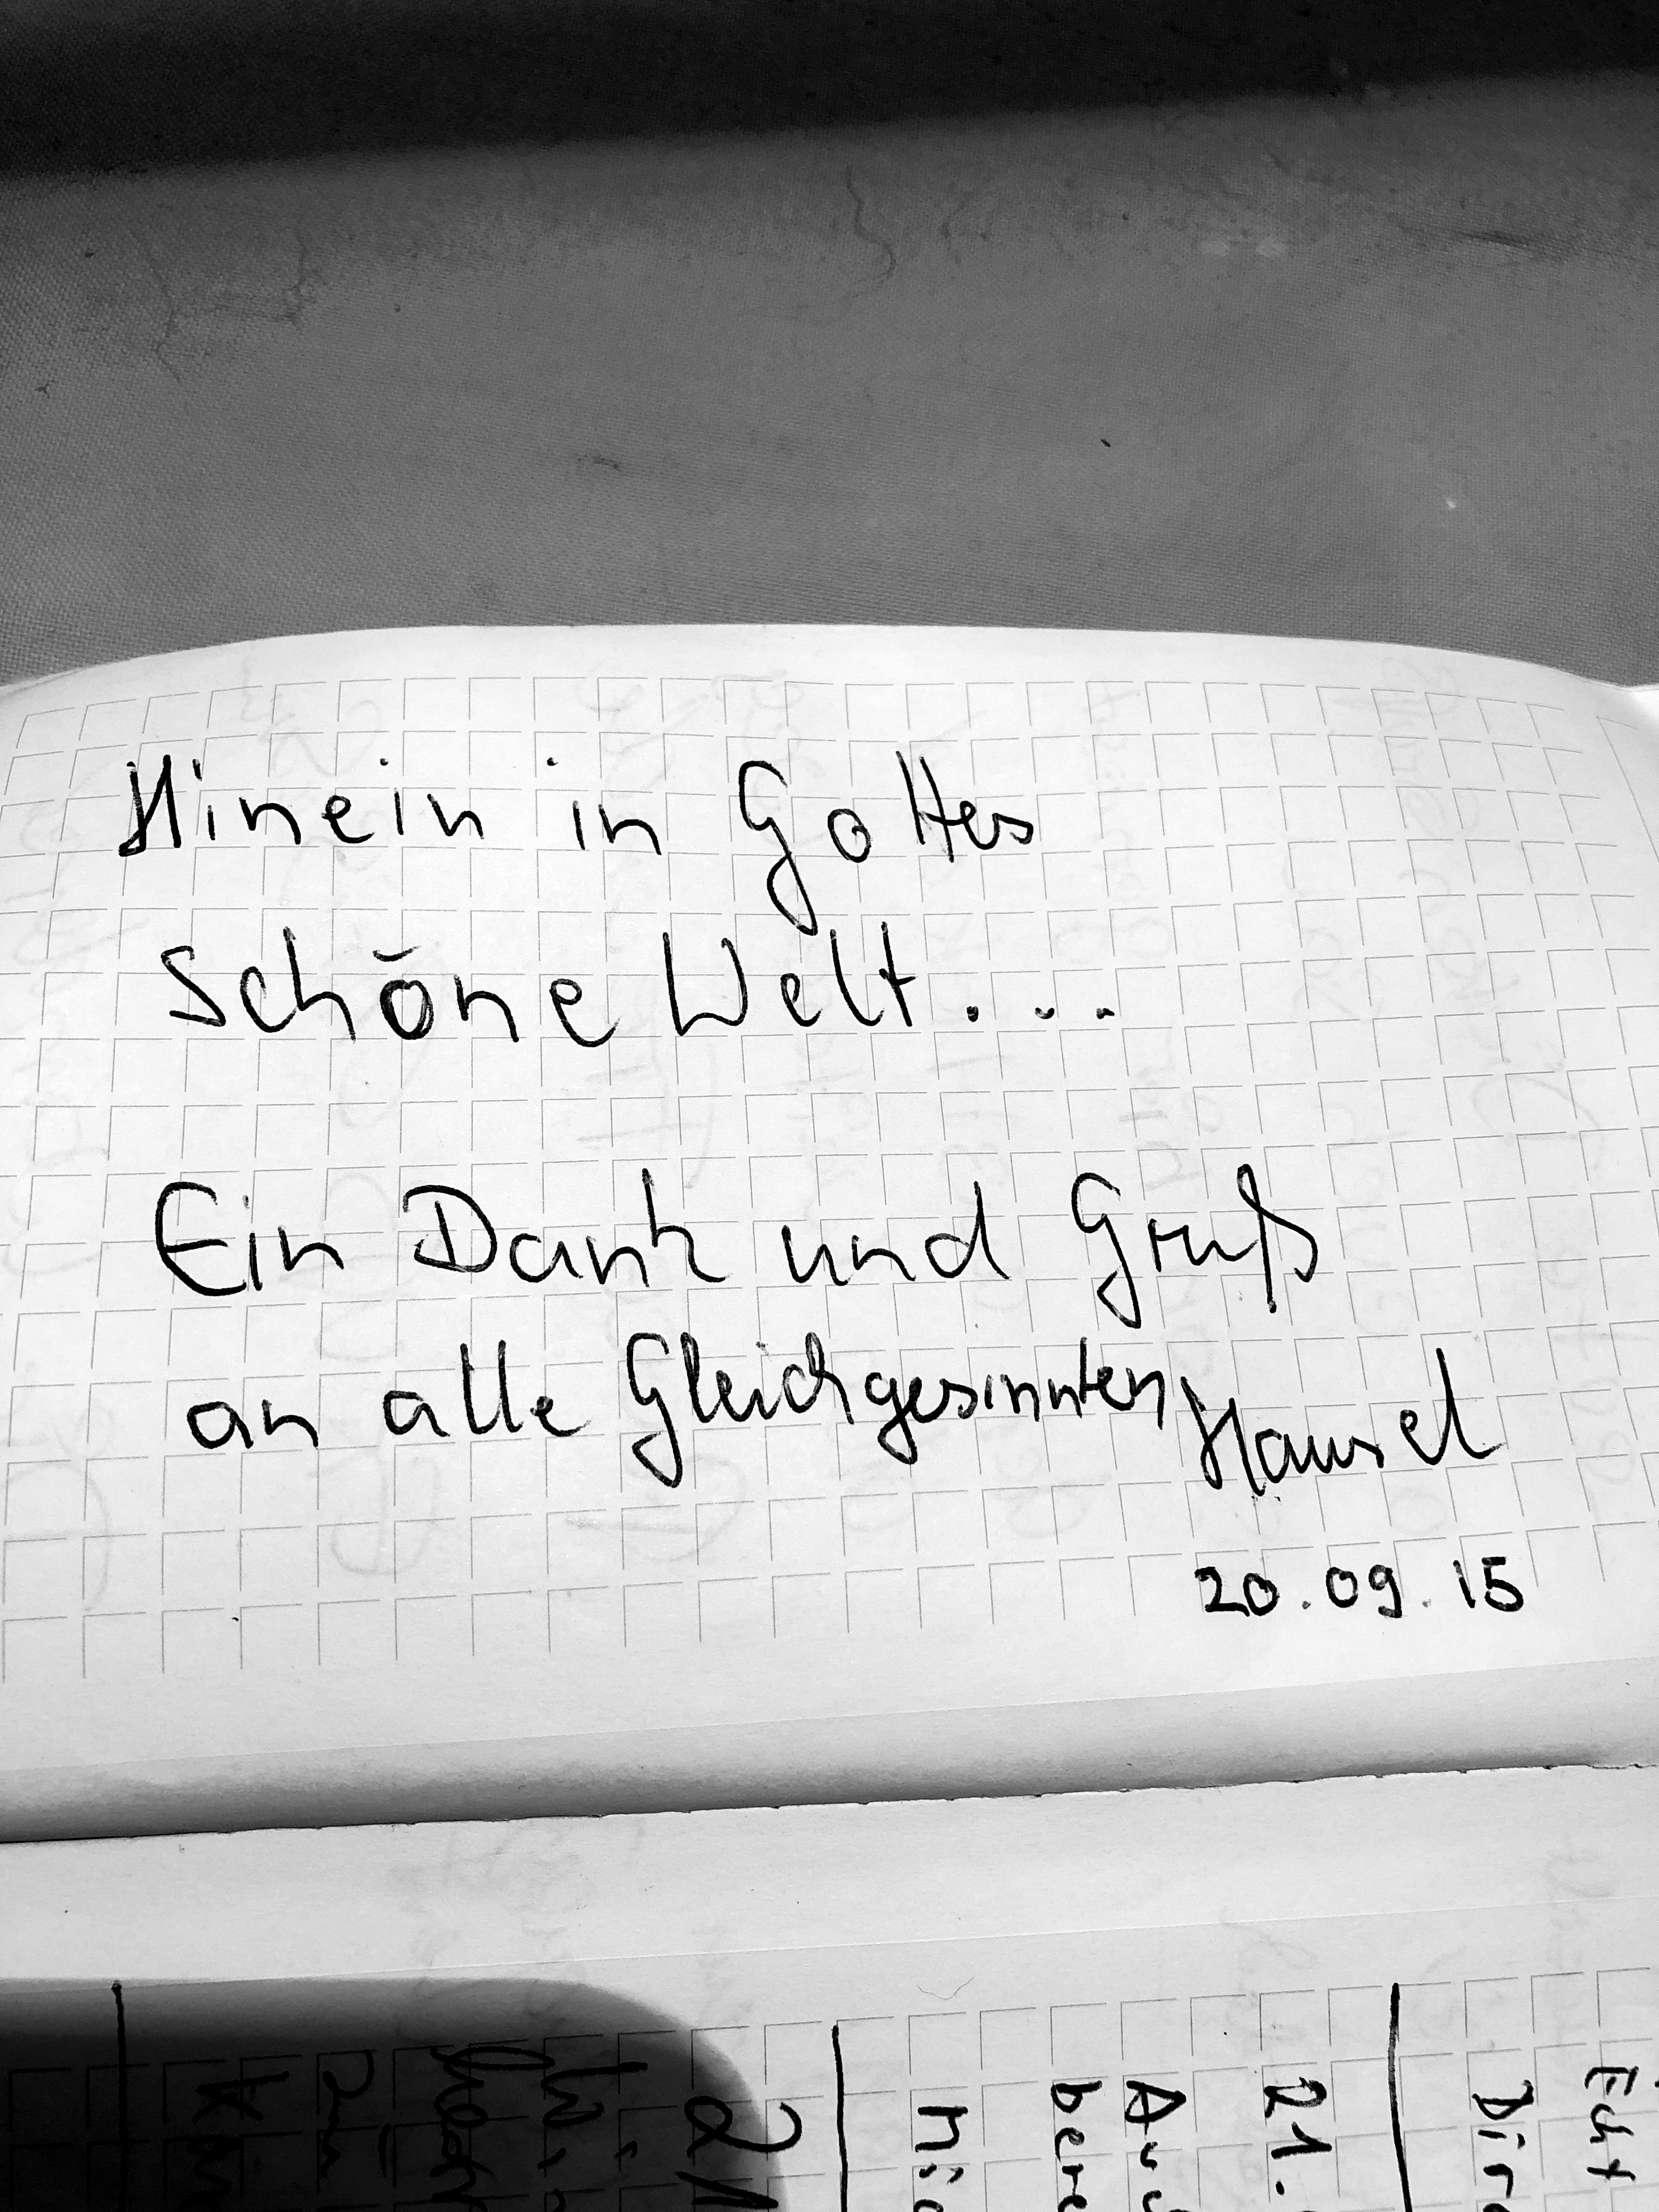 Hinein in Gottes
schöne Welt...
Ein Dank und Gruß
an alle Gleichgesinnten
Hansel
20.09.15
21.